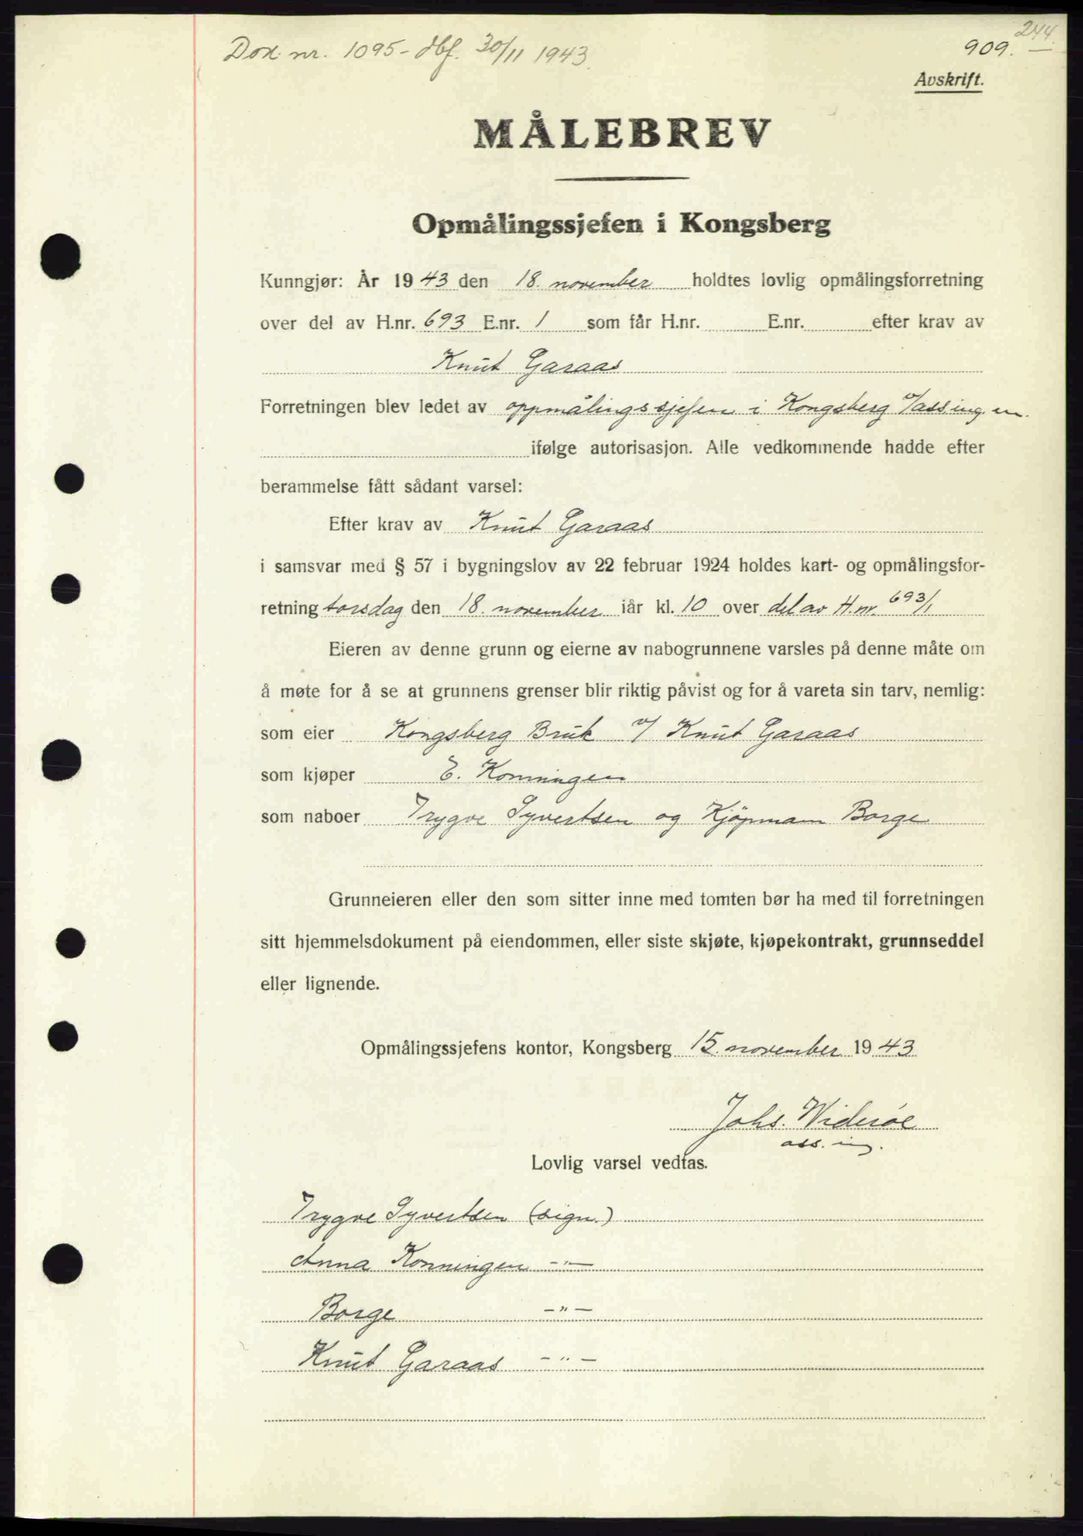 244.
Dok. nr. 1095 - dbf. 30/11 1943.
909.
Avskrift.
MÅLEBREV
Opmålingssjefen i Kongsberg
Kunngjør: År 1943 den 18. november holdtes lovlig opmålingsforretning
over del av H.nr. 693 E.nr. 1 som får H.nr. E.nr. efter krav av
Knut Garaas
Forretningen blev ledet av oppmålingssjefen i Kongsberg v/ass ingen.
ifølge autorisasjon. Alle vedkommende hadde efter
berammelse fått sådant varsel:
Efter krav av Knut Garaas
i samsvar med § 57 i bygningslov av 22 februar 1924 holdes kart- og opmålingsfor-
retning torsdag den 18. november iår kl. 10 over del av H.nr. 693/1
Eieren av denne grunn og eierne av nabogrunnene varsles på denne måte om
å møte for å se at grunnens grenser blir riktig påvist og for å vareta sin tarv, nemlig:
som eier Kongsberg Bruk v/ Knut Garaas
som kjøper E. Konningen
som naboer Trygve Syvertsen og Kjöpmann Borge
Grunneieren eller den som sitter inne med tomten bør ha med til forretningen
sitt hjemmelsdokument på eiendommen, eller siste skjøte, kjøpekontrakt, grunnseddel
eller lignende.
Opmålingssjefens kontor, Kongsberg 15. november 1943
Johs. Widerøe
ass. ing.
Lovlig varsel vedtas.
Trygve Syvertsen (sign.)
Anna Konningen -"-
Borge -"-
Knut Garaas -"-